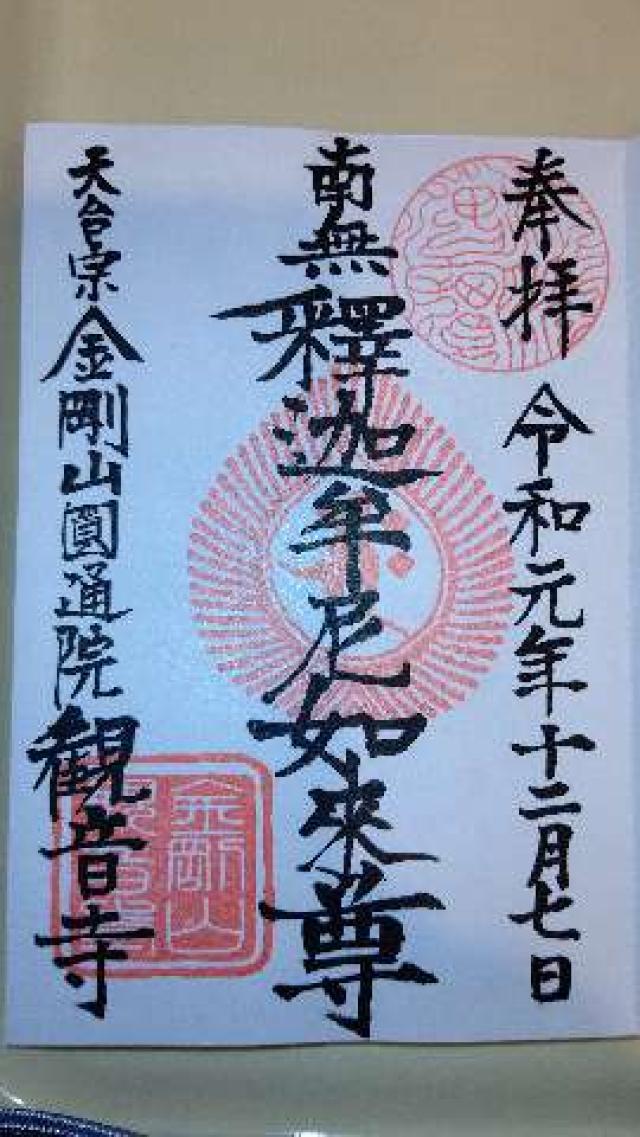 奉拝 令和元年十二月七日
南無釋迦牟尼如来尊
天台宗金剛山圓通院観音寺
金剛山